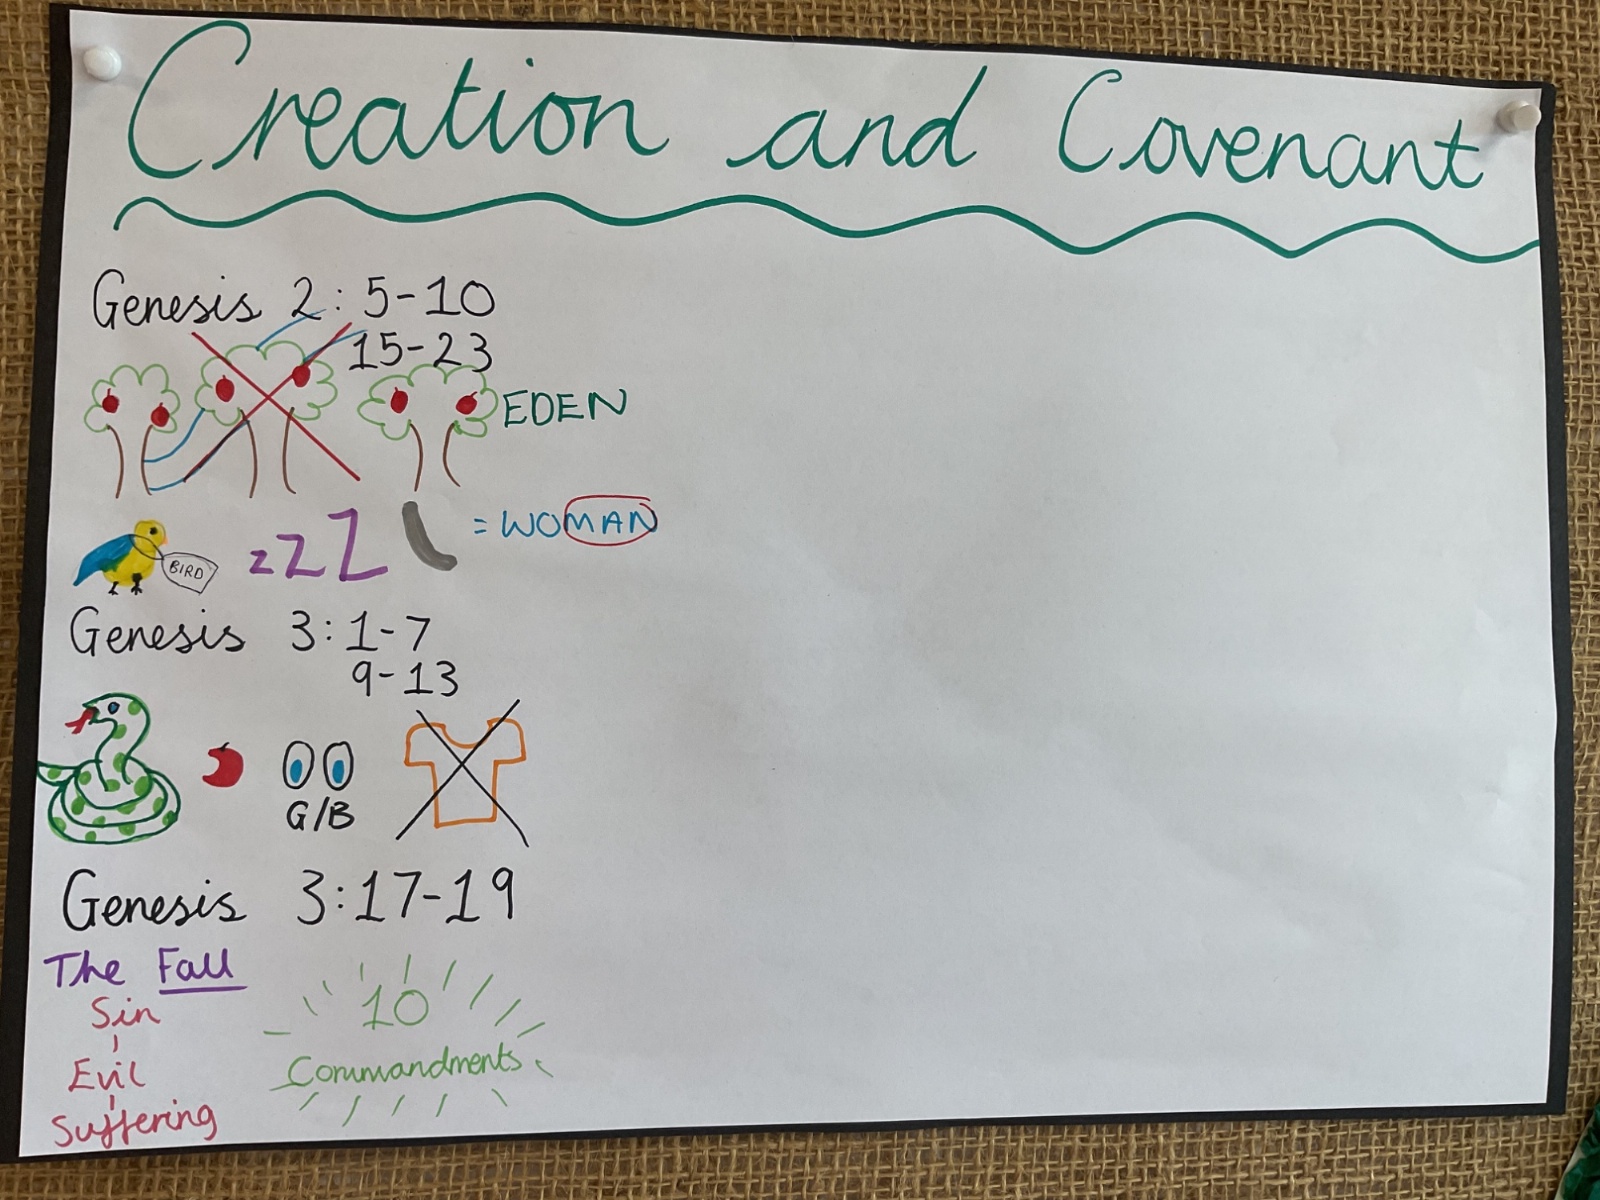 Creation and Covenant
Genesis 2: 5-10
15-23
EDEN
= WOMAN
BIRD
zZZ
Genesis 3: 1-7
9-13
G/B
Genesis 3:17-19
The Fall
Sin
Evil
Suffering
10
Commandments